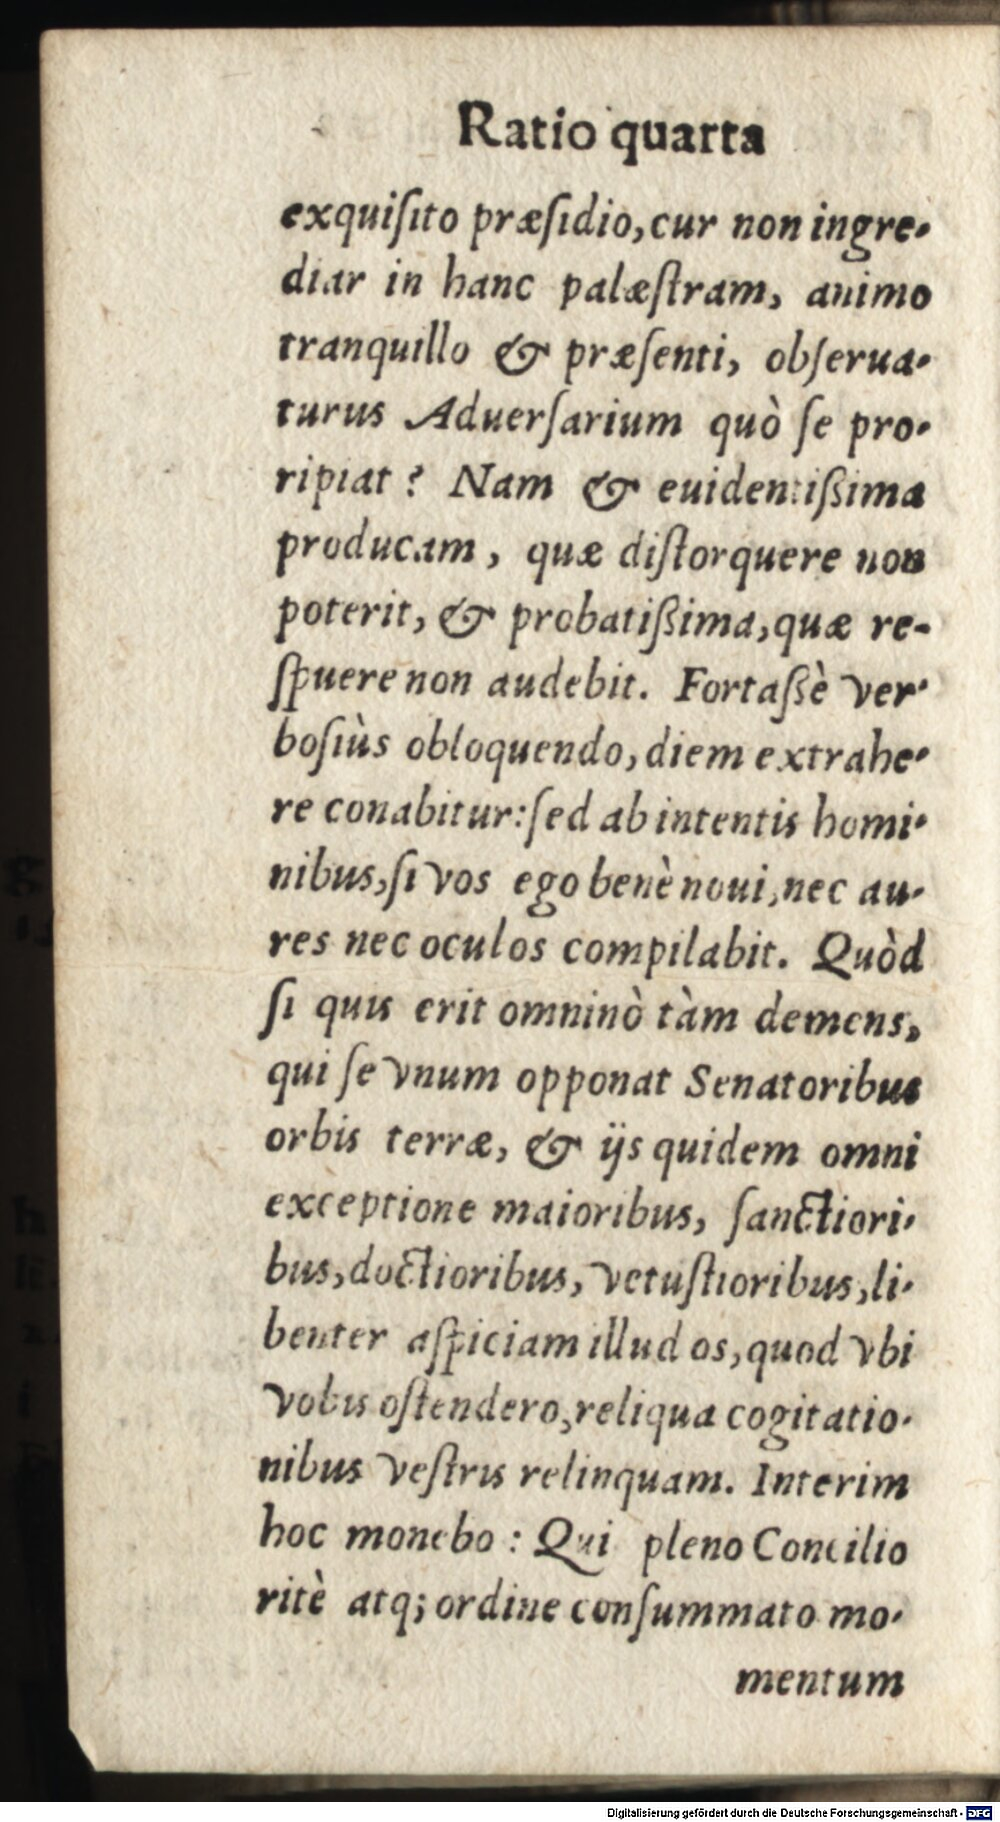 Ratio quarta
exquiſito præſidio, cur non ingre-
diar in hanc palæſtram, animo
tranquillo & præſenti, obſerua-
turus Aduerſarium quò ſe pro-
ripiat? Nam & euidentiſsima
producam, quæ diſtorquere non
poterit, & probatiſsima, quæ re-
ſpuere non audebit. Fortaſsè ver-
boſiùs obloquendo, diem extrahe-
re conabitur: ſed ab intentis homi-
nibus, ſi vos ego benè noui, nec au-
res nec oculos compilabit. Quòd
ſi quis erit omninò tàm demens,
qui ſe vnum opponat Senatoribus
orbis terræ, & ijs quidem omni
exceptione maioribus, ſanctiori-
bus, doctioribus, vetuſtioribus, li-
benter aſpiciam illud os, quod vbi
vobis oſtendero, reliqua cogitatio-
nibus veſtris relinquam. Interim
hoc monebo: Qui pleno Concilio
ritè atq; ordine conſummato mo-
mentum
Digitalisierung gefördert durch die Deutsche Forschungsgemeinschaft - DFG